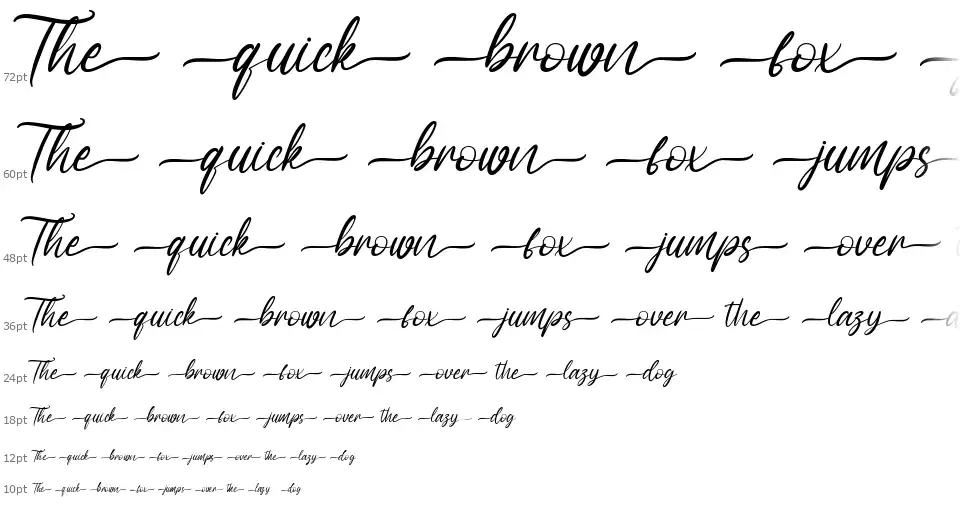 72pt The quick brown fox
60pt The quick brown fox jumps
48pt The quick brown fox jumps over
36pt The quick brown fox jumps over the lazy
24pt The quick brown fox jumps over the lazy dog
18pt The quick brown fox jumps over the lazy dog
12pt The quick brown fox jumps over the lazy dog
10pt The quick brown fox jumps over the lazy dog